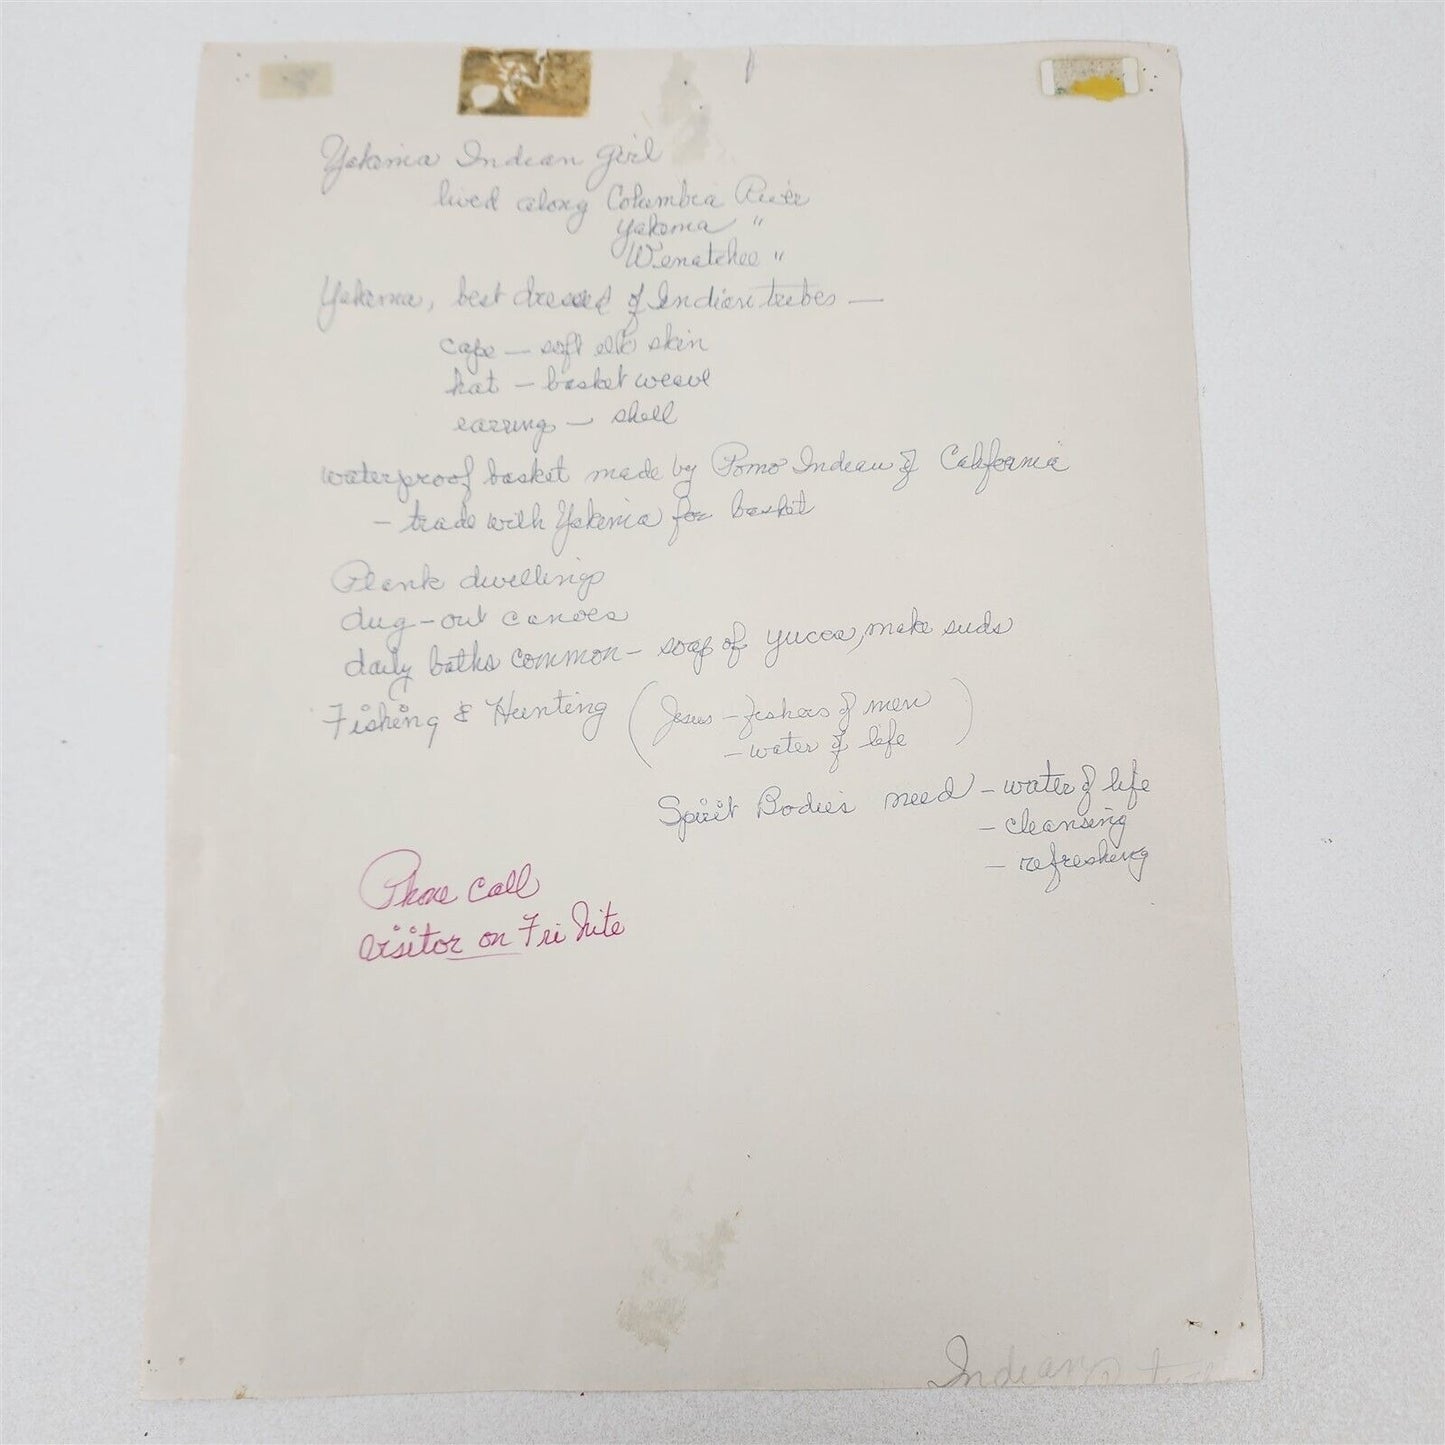 Yakima Indian Girl
lived along Columbia River
Yakima "
Wenatchee "
Yakima, best dressed of Indian tribes —
cape — soft elk skin
hat — basket weave
earring — shell
waterproof basket made by Pomo Indian of California
- trade with Yakima for basket
Plank dwellings
dug-out canoes
daily baths common - soap of yucca, make suds
Fishing & Hunting (Jesus - fishers of men
- water of life)
Spirit Bodies need - water of life
- cleansing
- refreshing
Phone Call
Visitor on Fri Nite
Indian